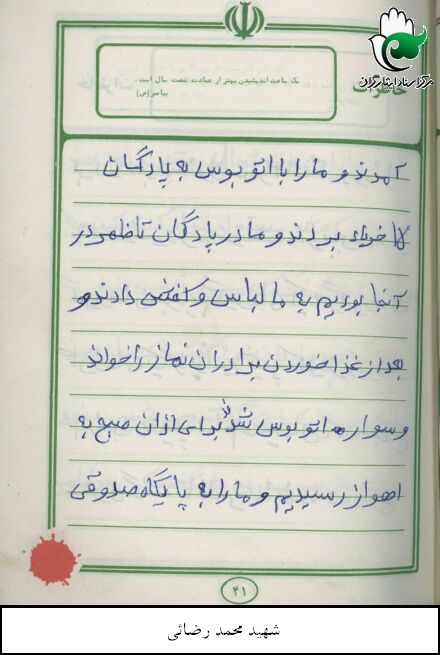 مرکز اسناد ایثارگران
خاطرات
یک ساعت اندیشیدن بهتر از عبادت شصت سال است.
پیامبر (ص)
آمدند و ما را با اتوبوس به پادگان
۱۵ خرداد بردند و ما در پادگان تا ظهر در
آنجا بودیم به ما لباس و کفش دادند و
بعد از غذا خوردن برادران نماز را خواند
و سوار اتوبوس شدند برای اذان صبح به
اهواز رسیدیم و ما را به پایگاه صدوقی
۴۱
شهید محمد رضائی